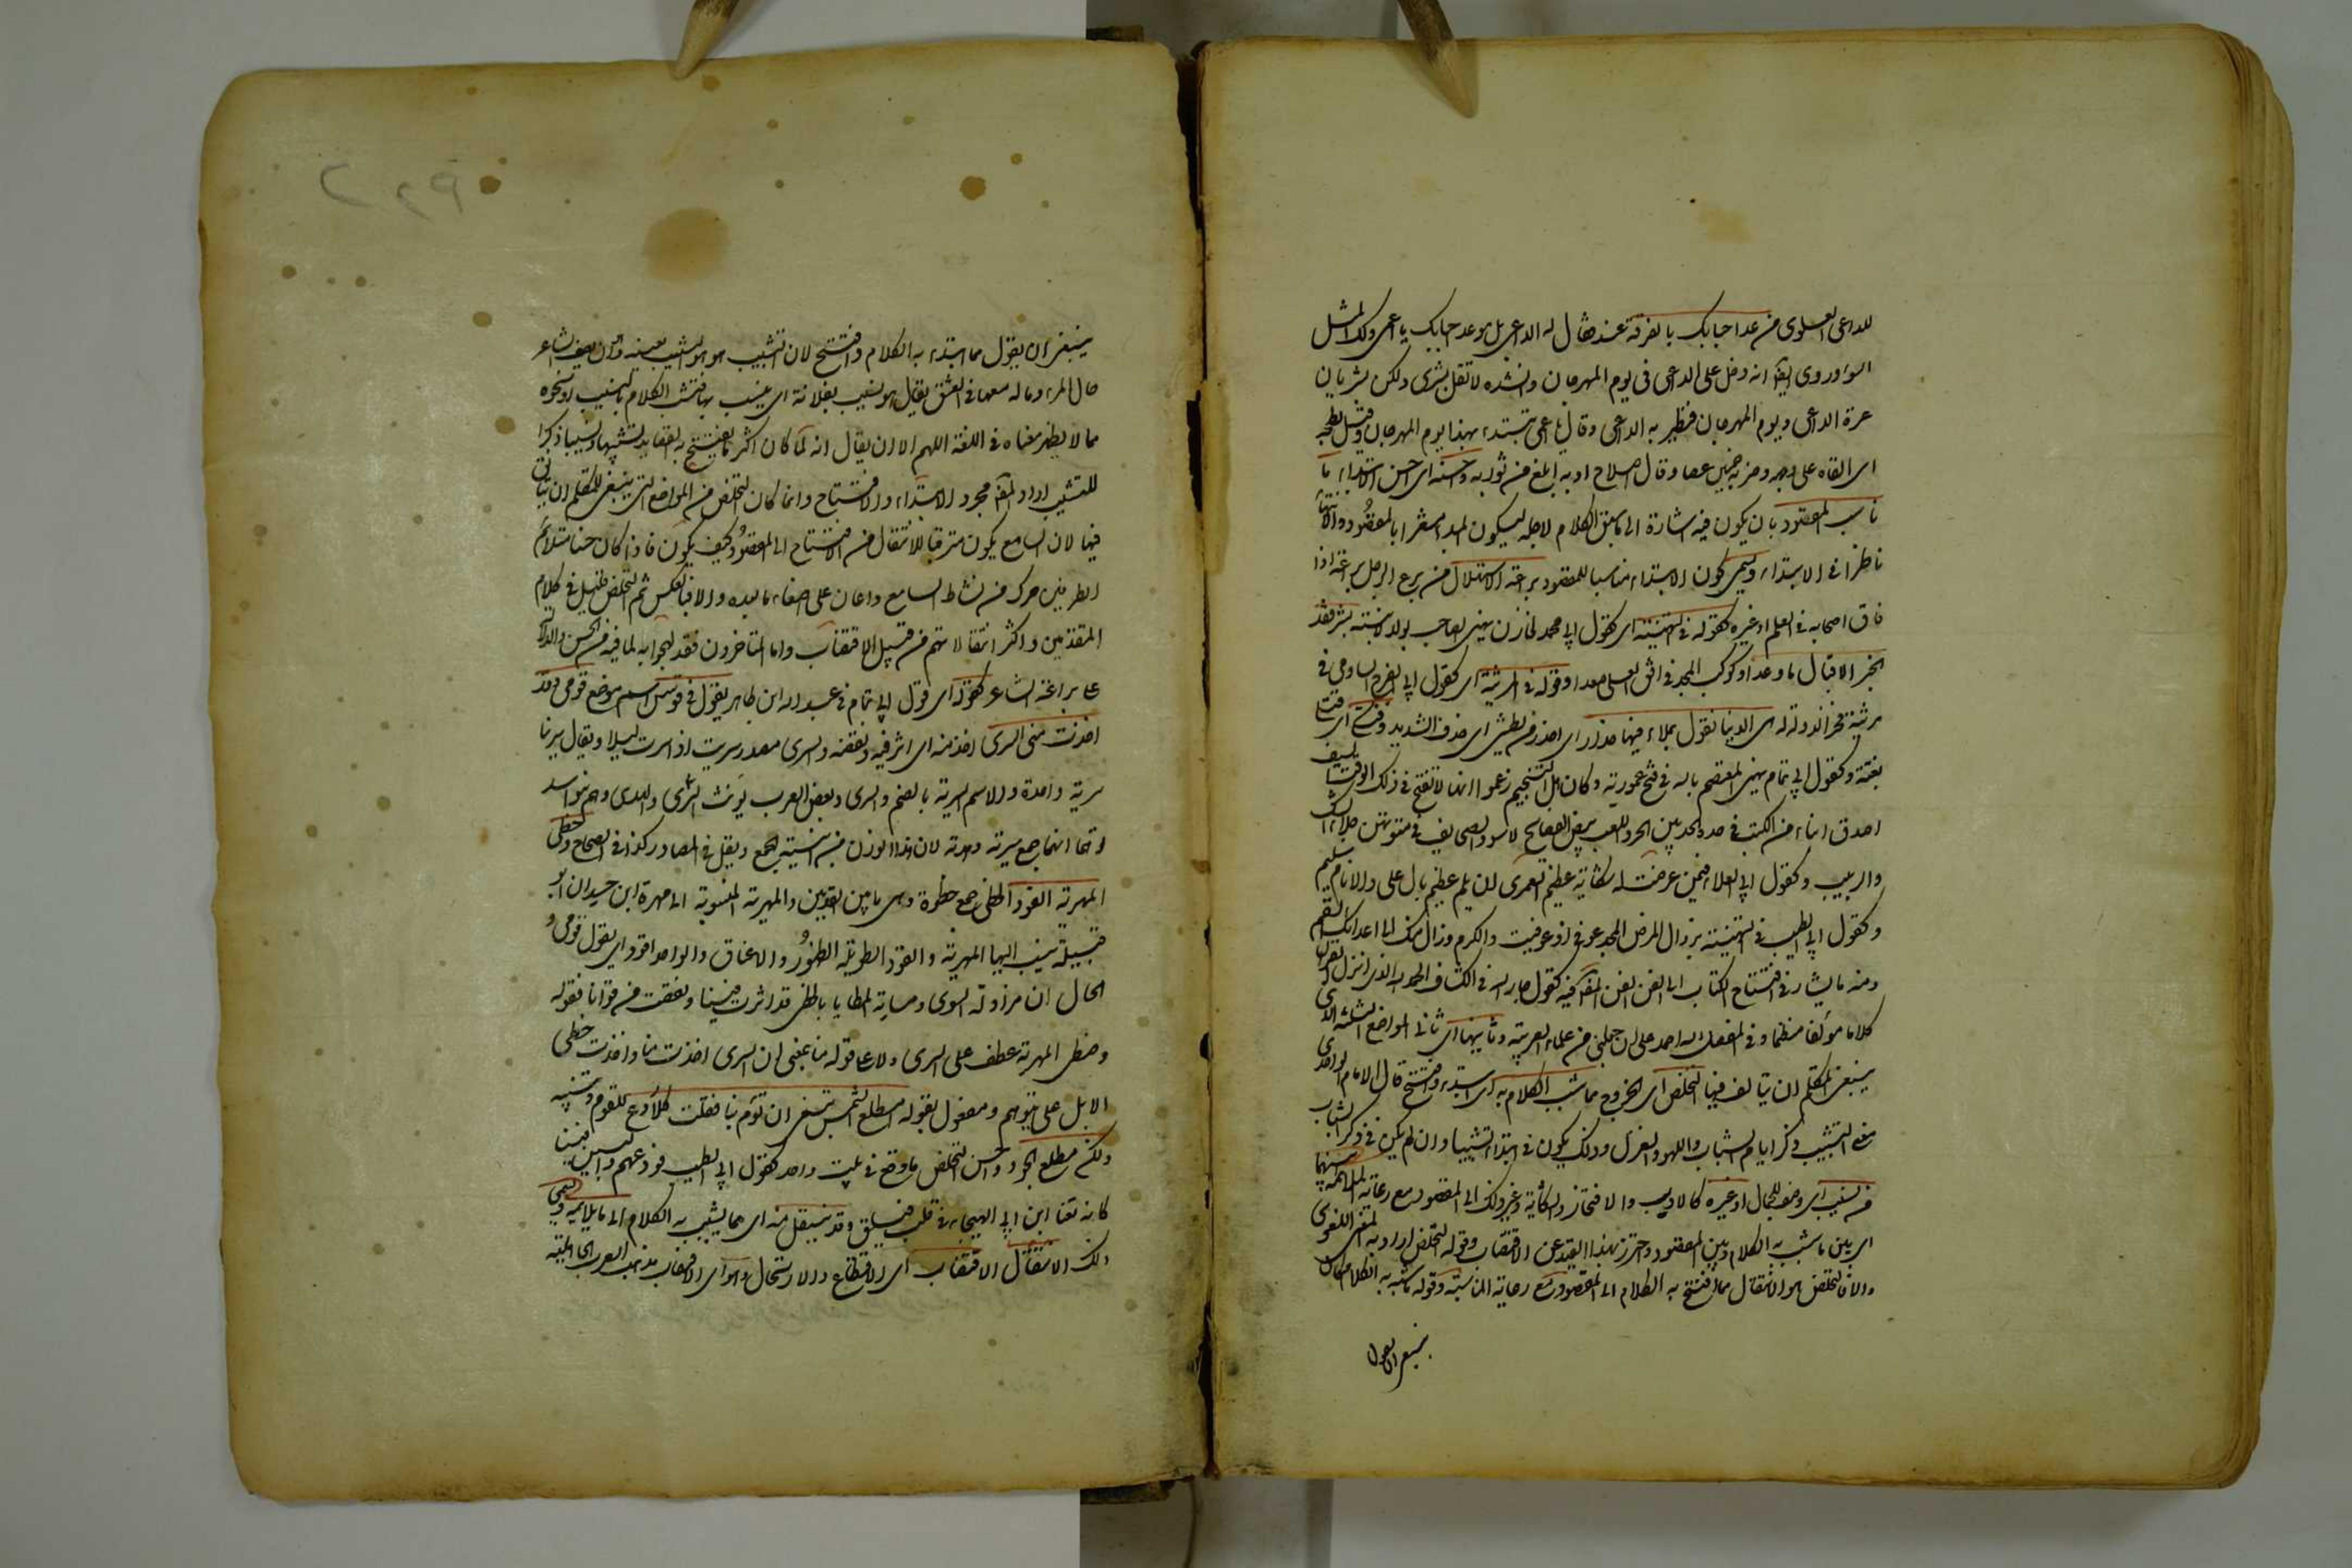 للداعى العلوى من موعد احبابك بالفرقة غد فقال له الداعى بل موعد احبابك يا اعمى ولك المثل
السوء وروى ايضا انه دخل على الداعى فى يوم المهرجان وانشده لا تقل بشرى ولكن بشريان
غرة الداعى ويوم المهرجان فتطير به الداعى وقال يا اعمى تبتدء بهذا يوم المهرجان وقيل بطحه
اى القاه على وجهه وضربه خمسين عصا وقال اصلاح ادبه ابلغ من ثوابه واحسنه اى احسن الابتداء ما
ناسب المقصود بان يكون فيه اشارة الى ما سيق الكلام لاجله ليكون المبدأ مشعرا بالمقصود والانتهاء
ناظرا فى الابتداء ويسمى كون الابتداء مناسبا للمقصود براعة الاستهلال من برع الرجل براعة اذا
فاق اصحابه فى العلم او غيره كقوله فى التهنية اى كقول ابى محمد الخازن يهنى الصاحب بولد لابنته بشرى فقد
انجز الاقبال ما وعدا وكوكب المجد فى افق العلى صعدا وقوله فى المرثية اى كقول ابى الفرج الساوى فى
مرثية فخر الدولة هى الدنيا تقول بملاء فيها حذار حذار اى احذر من بطشى اى اخذى الشديد وفتكى اى قتلى
بغتة وكقول ابى تمام يهنى المعتصم بالله فى فتح عمورية وكان اهل التنجيم زعموا انها لا تفتح فى ذلك الوقت السيف
اصدق انباء من الكتب فى حده الحد بين الجد واللعب بيض الصفائح لا سود الصحايف فى متونهن جلاء الشك
والريب وكقول ابى العلاء فيمن عرضت له شكاية عظيم لعمرى ان يلم عظيم بال على والانام سليم
وكقول ابى الطيب فى التهنية بزوال المرض المجد عوفى اذ عوفيت والكرم وزال عنك الى اعدائك السقم
ومنه ما يشار فى افتتاح الكتاب الى الفن المصنف فيه كقول جار الله فى الكشاف الحمد لله الذى انزل القرآن
كلاما مؤلفا منظما وفى المفصل الله احمد على ان جعلنى من علماء العربية وثانيها اى ثانى المواضع الثلثة التى
ينبغى للمتكلم ان يتأنق فيها التخلص اى الخروج مما شبب الكلام به اى ابتدء وافتتح قال الامام الواحدى
معنى التشبيب ذكر ايام الشباب واللهو والغزل وذلك يكون فى ابتداء تشبيبا وان لم يكن فى ذكر الشباب
من نسيب اى وصف للجمال او غيره كالادب والافتخار والشكاية وغير ذلك الى المقصود مع رعاية الملائمة بينهما
اى بين ما شبب به الكلام وبين المقصود واحترز بهذا القيد عن الاقتضاب وقوله التخلص اراد به المعنى اللغوى
والا فالتخلص هو الانتقال مما افتتح به الكلام الى المقصود مع رعاية المناسبة وقوله ما شبب به الكلام كان
ينبغى ان يقول
ينبغى ان يقول مما ابتدء به الكلام وافتتح لان التشبيب هو النسيب بعينه وهو ان يصف الشاعر
حال المرءة وماله معها فى العشق يقال هو ينسب بفلانة اى ينسب بها فتشبيب الكلام بالنسيب او نحوه
مما لا يظهر معناه فى اللغة اللهم الا ان يقال انه لما كان اكثر ما يفتتح به القصايد تشبيها ونسيبا ذكر
التشبيب اراد المص مجرد الابتداء والافتتاح وانما كان التخلص من المواضع التى ينبغى للمتكلم ان يتأنق
فيها لان السامع يكون مترقبا للانتقال من الافتتاح الى المقصود كيف يكون فاذا كان حسنا متلائم
الطرفين حرك من نشاط السامع واعان على اصغاء ما بعده والا فبالعكس ثم التخلص قليل فى كلام
المتقدمين واكثر انتقالاتهم من قبيل الاقتضاب واما المتأخرون فقد لهجوا به لما فيه من الحسن والدلالة
على براعة الشاعر كقوله اى قول ابى تمام فى عبد الله ابن طاهر يقول فى قومس اسم موضع قومى وقد
اخذت منى السرى اخذ منه اى اثر فيه ونقصه والسرى مصدر سريت اذا سرت ليلا ويقال سرينا
سرية واحدة والاسم السرية بالضم والسرى وبعض العرب يؤنث السرى والهدى وهم بنو اسد
توهما انهما جمع سرية وهدية لان هذا الوزن من ابنية الجمع ويقل فى المصادر كذا فى الصحاح وخطى
المهرية القود الخطى جمع خطوة وهى ما بين القدمين والمهرية المنسوبة الى مهرة ابن حيدان ابو
قبيلة ينسب اليها المهرية والقود الطويلة الظهور والاعناق والواحد اقود اى يقول قومى و
الحال ان مزاولة السرى ومسايرة المطايا بالخطى قد اثرت فينا ونقصت من قوانا فقوله
وخطى المهرية عطف على السرى ولا على قوله منا بمعنى ان السرى اخذت منا واخذت خطى
الابل على ما يتوهم ومفعول يقول قوله امطلع الشمس تبغى ان تؤم بنا فقلت كلا ردع للقوم وتنبيه
ولكن مطلع الجود واحسن التخلص ما وقع فى بيت واحد كقول ابى الطيب نودعهم والبين فينا
كانه قنا ابن ابى الهيجاء فى قلب فيلق وقد ينتقل منه اى مما يشبب به الكلام الى ما لا يلائمه ويسمى
ذلك الانتقال الاقتضاب اى الاقتطاع والارتجال وهو اى الاقتضاب مذهب العرب الجاهلية